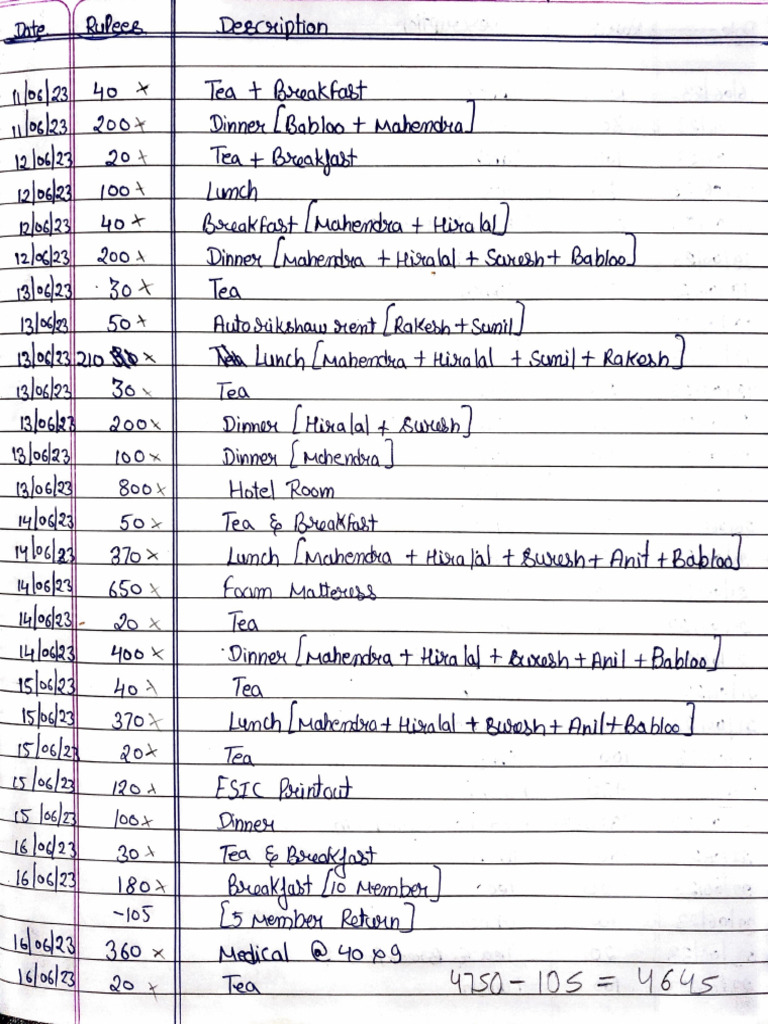 Date Rupees Description
11/06/23 40 x Tea + Breakfast
11/06/23 200 x Dinner [Babloo + Mahendra]
12/06/23 20 x Tea + Breakfast
12/06/23 100 x Lunch
12/06/23 40 x Breakfast [Mahendra + Hiralal]
12/06/23 200 x Dinner [Mahendra + Hiralal + Suresh + Babloo]
13/06/23 30 x Tea
13/06/23 50 x Autorikshaw rent [Rakesh + Sunil]
13/06/23 210 x Lunch [Mahendra + Hiralal + Sunil + Rakesh]
13/06/23 30 x Tea
13/06/23 200 x Dinner [Hiralal + Suresh]
13/06/23 100 x Dinner [Mahendra]
13/06/23 800 x Hotel Room
14/06/23 50 x Tea & Breakfast
14/06/23 370 x Lunch [Mahendra + Hiralal + Suresh + Anil + Babloo]
14/06/23 650 x Foam Matteress
14/06/23 20 x Tea
14/06/23 400 x Dinner [Mahendra + Hiralal + Suresh + Anil + Babloo]
15/06/23 40 x Tea
15/06/23 370 x Lunch [Mahendra + Hiralal + Suresh + Anil + Babloo]
15/06/23 20 x Tea
15/06/23 120 x ESIC Printout
15/06/23 100 x Dinner
16/06/23 30 x Tea & Breakfast
16/06/23 180 x Breakfast [10 Member]
-105 [5 Member Return]
16/06/23 360 x Medical @ 40 x 9
16/06/23 20 x Tea 4750 - 105 = 4645